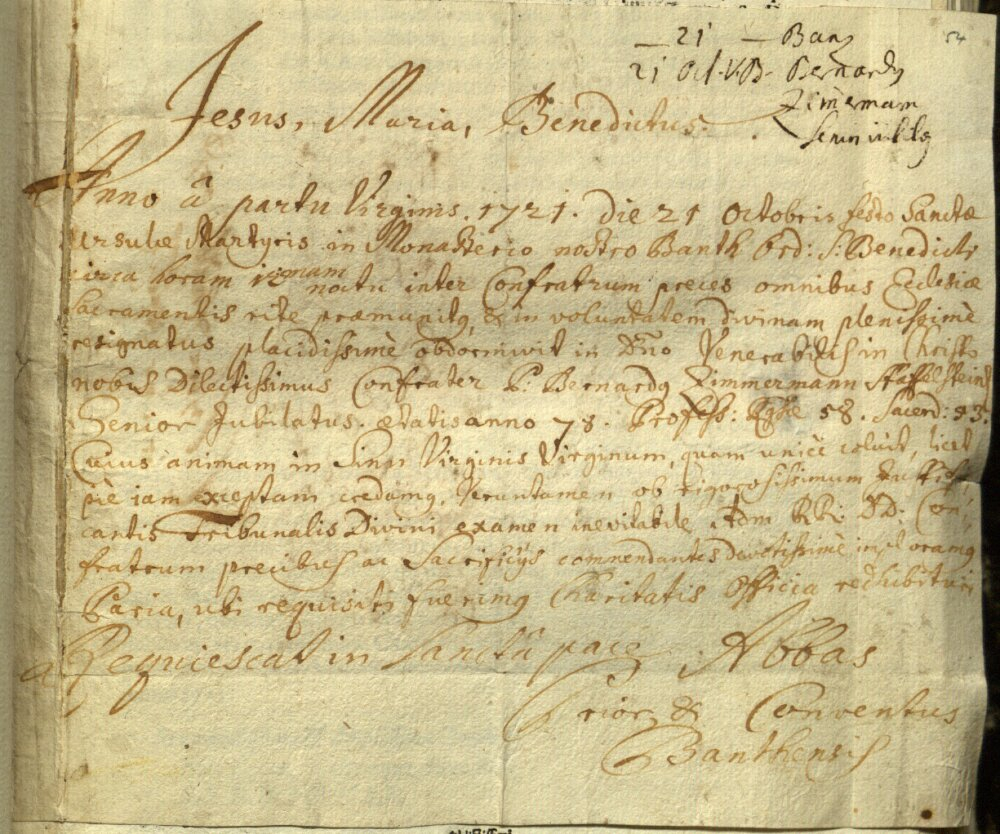 54
— 21 — Banz
21 Oct. V.B. Bernardq
Zimemam
Senin iubilq
Jesus, Maria, Benedictus.
Anno â partu Virginis. 1721. die 21 Octobris festo Sanctæ
Ursulæ Martyris in Monasterio nostro Banth Ord: S. Benedicti
circa horam noctu inter Confratrum preces omnibus Ecclesiæ
Sacramentis rite præmunitq, & in voluntatem divinam plenissimè
resignatus placidissimè obdormivit in Dño Venerabilis in Christo
nobis Dilectissimus Confrater P. Bernardq Zimmermann Staffelstein
Senior Jubilatus. ætatis anno 78. Profess: 58. Sacerd: 53.
Cuius animam in sinu Virginis Virginum, quam unicè coluit, licet
piè iam exceptam credamq, Veruntamen ob rigorosissimum
Tribunalis Divini examen inevitabile Adm RR: DD: Con-
fratrum precibus ac Sacrificijs commendantes devotissimè imploramq
Paria, ubi requisiti fuerimq Charitatis Officia redhibituri
Requiescat in Sanctâ pace Abbas
Prior & Conventus
Banthensis